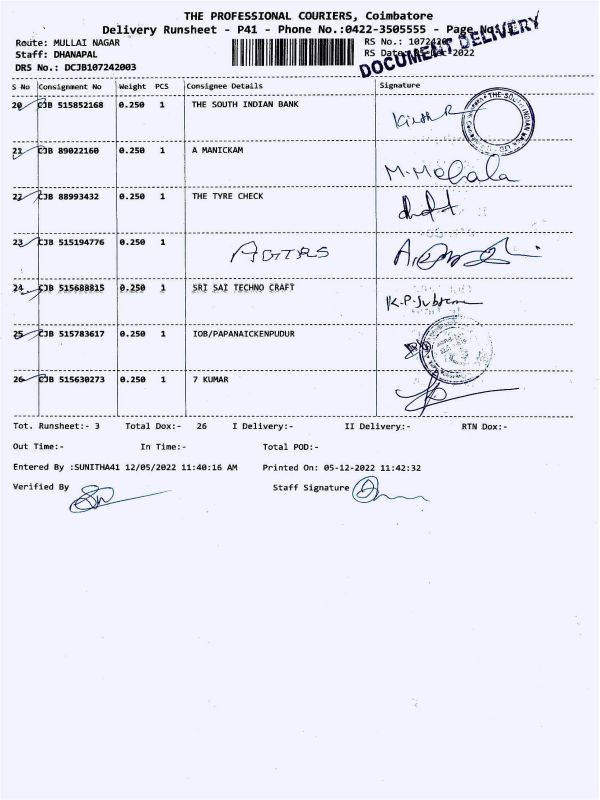 THE PROFESSIONAL COURIERS, Coimbatore
Delivery Runsheet - P41 - Phone No.:0422-3505555 - Page No
DOCUMENT DELIVERY
Route: MULLAI NAGAR RS No.:
Staff: DHANAPAL RS Date 2022
DRS No.: DCJB107242003
S No Consignment No Weight PCS Consignee Details Signature
20 CJB 515852168 0.250 1 THE SOUTH INDIAN BANK
21 CJB 89022160 0.250 1 A MANICKAM
M.
22 CJB 88993432 0.250 1 THE TYRE CHECK
23 CJB 515194776 0.250 1
24 CJB 515688815 0.250 1 SRI SAI TECHNO CRAFT
K.P.
25 CJB 515783617 0.250 1 IOB/PAPANAICKENPUDUR
26 CJB 515630273 0.250 1 7 KUMAR
Tot. Runsheet:- 3 Total Dox:- 26 I Delivery:- II Delivery:- RTN Dox:-
Out Time:- In Time:- Total POD:-
Entered By :SUNITHA41 12/05/2022 11:40:16 AM Printed On: 05-12-2022 11:42:32
Verified By Staff Signature